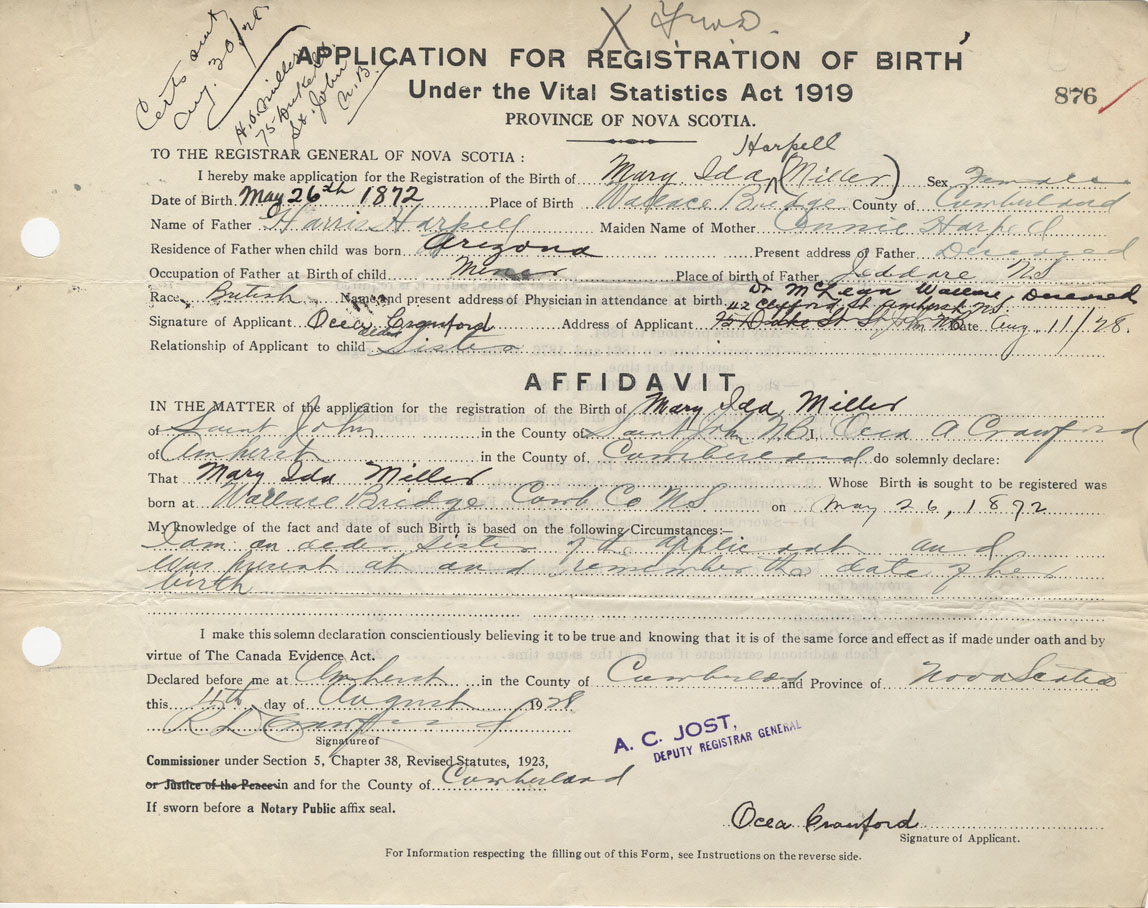 X Two.
Certs sent
Aug. 30/28
H. S. Miller
75 Duke St
St. John
N.B.
APPLICATION FOR REGISTRATION OF BIRTH
Under the Vital Statistics Act 1919
876
PROVINCE OF NOVA SCOTIA.
TO THE REGISTRAR GENERAL OF NOVA SCOTIA :
Harpell
I hereby make application for the Registration of the Birth of Mary Ida (Miller) Sex Female
Date of Birth. May 26th 1872 Place of Birth Wallace Bridge County of Cumberland
Name of Father Harris Harpell Maiden Name of Mother Annie Harpell
Residence of Father when child was born Arizona Present address of Father Deceased
Occupation of Father at Birth of child Miner Place of birth of Father Jeddore NS
Race British Name and present address of Physician in attendance at birth. Dr McLean Wallace, Deceased
112 Clifford St Amherst N.S.
Signature of Applicant Ocea Crawford Address of Applicant 75 Duke St St John NB Date Aug 11/28.
Relationship of Applicant to child elder Sister
AFFIDAVIT
IN THE MATTER of the application for the registration of the Birth of Mary Ida Miller
of Saint John in the County of Saint John N.B. I, Ocea A Crawford
of Amherst in the County of Cumberland do solemnly declare:
That Mary Ida Miller Whose Birth is sought to be registered was
born at Wallace Bridge Comb Co NS on May 26, 1872
My knowledge of the fact and date of such Birth is based on the following Circumstances:—
I am an elder sister of the applicant and
was present at and remember the date of her
birth
I make this solemn declaration conscientiously believing it to be true and knowing that it is of the same force and effect as if made under oath and by
virtue of The Canada Evidence Act.
Declared before me at Amherst in the County of Cumberland and Province of Nova Scotia
this 11th day of August 1928
R L Crawford
Signature of
A. C. JOST,
DEPUTY REGISTRAR GENERAL
Commissioner under Section 5, Chapter 38, Revised Statutes, 1923,
or Justice of the Peace in and for the County of Cumberland
If sworn before a Notary Public affix seal.
Ocea Crawford
Signature of Applicant.
For Information respecting the filling out of this Form, see Instructions on the reverse side.